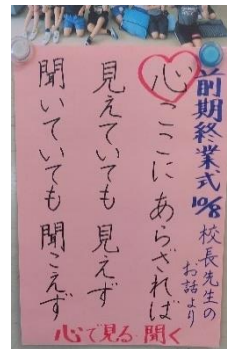 前期終業式10/8 校長先生の
お話より
心ここにあらざれば
見えていても 見えず
聞いていても 聞こえず
心で見る・聞く